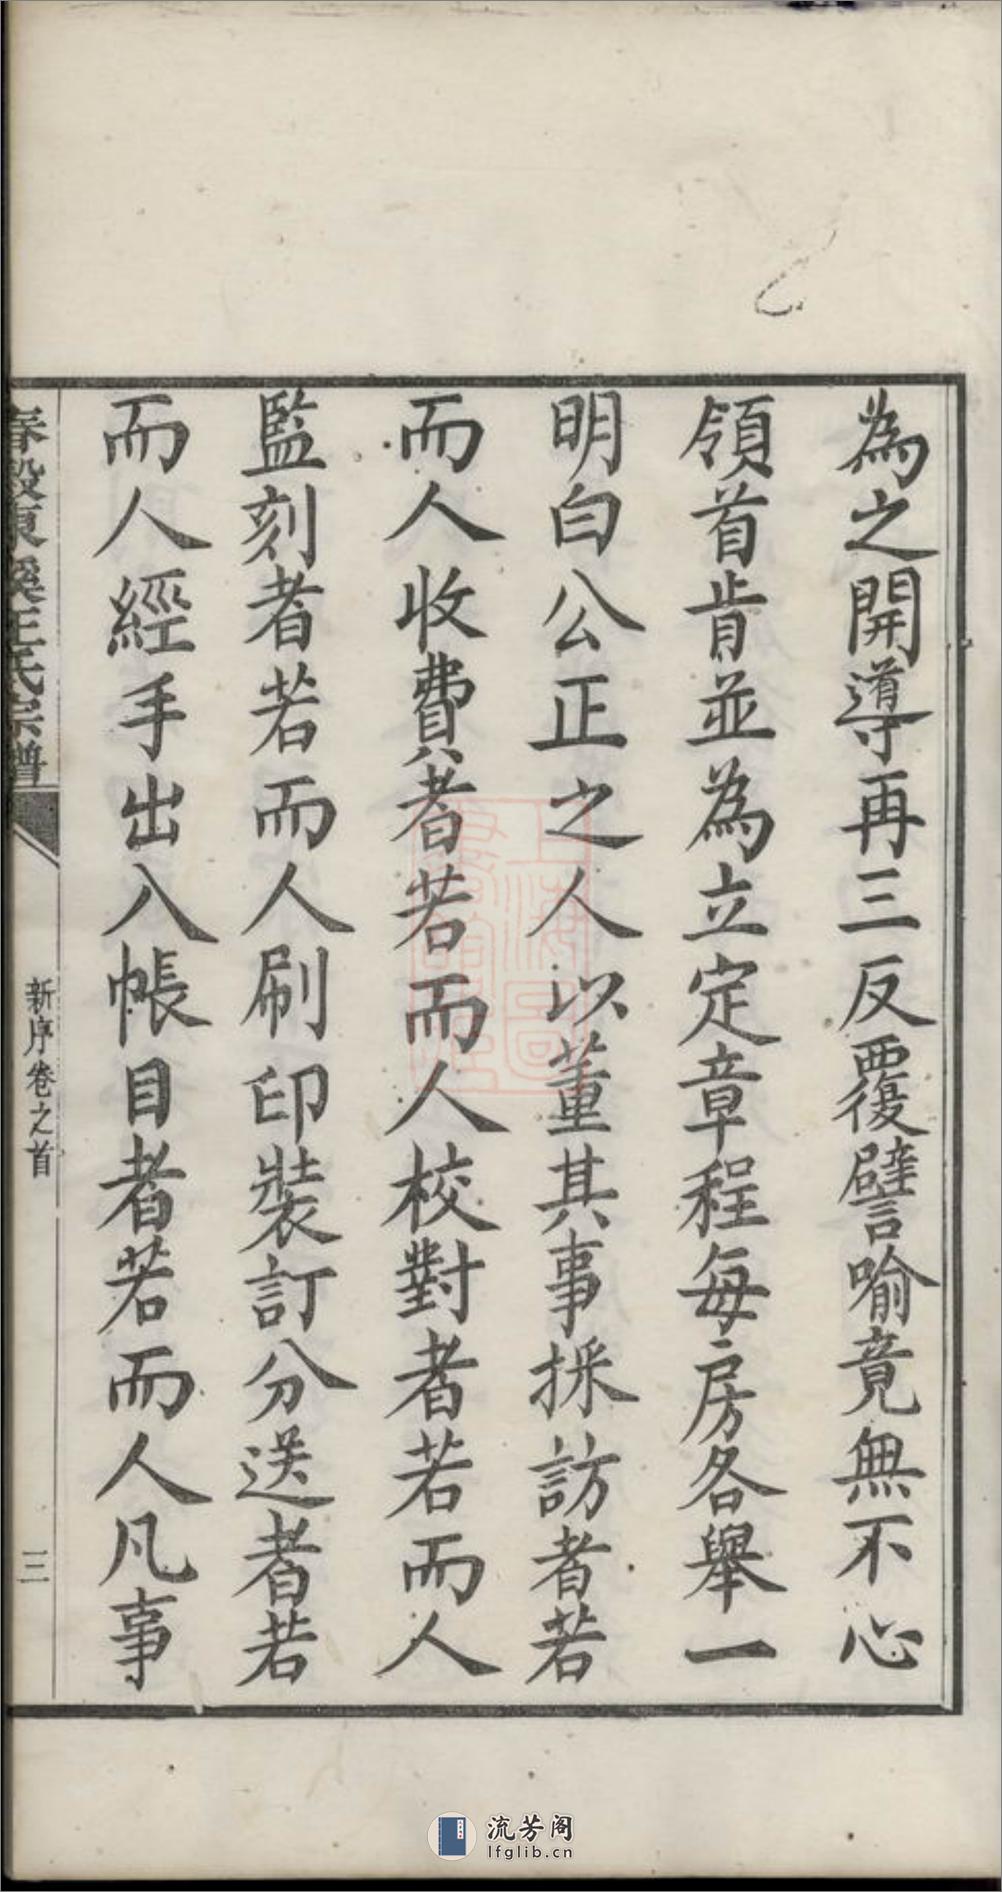 為之開導再三反覆譬喻竟無不心
領首肯並為立定章程每房各舉一
明白公正之人以董其事採訪者若
而人收費者若而人校對者若而人
監刻者若而人刷印裝訂分送者若
而人經手出入帳目者若而人凡事
春穀東溪王氏宗譜
新序卷之首
三
上海圖
流芳阁
lfglib.cn